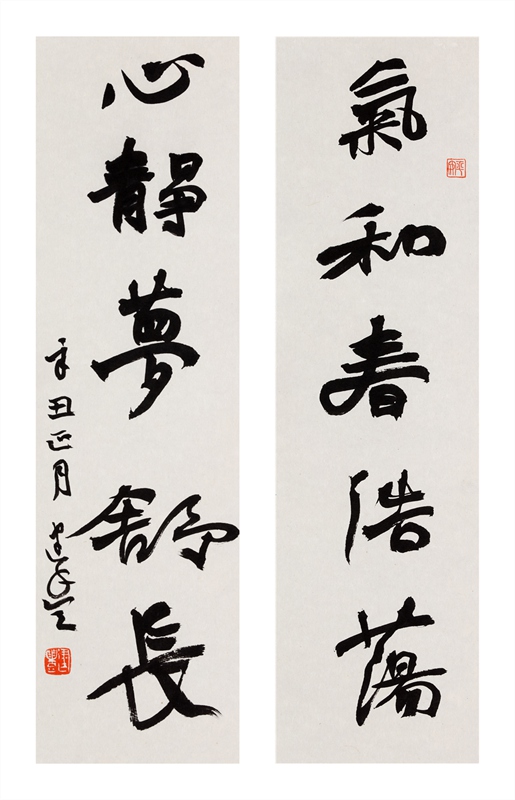 氣和春浩蕩
心靜夢舒長
辛丑正月